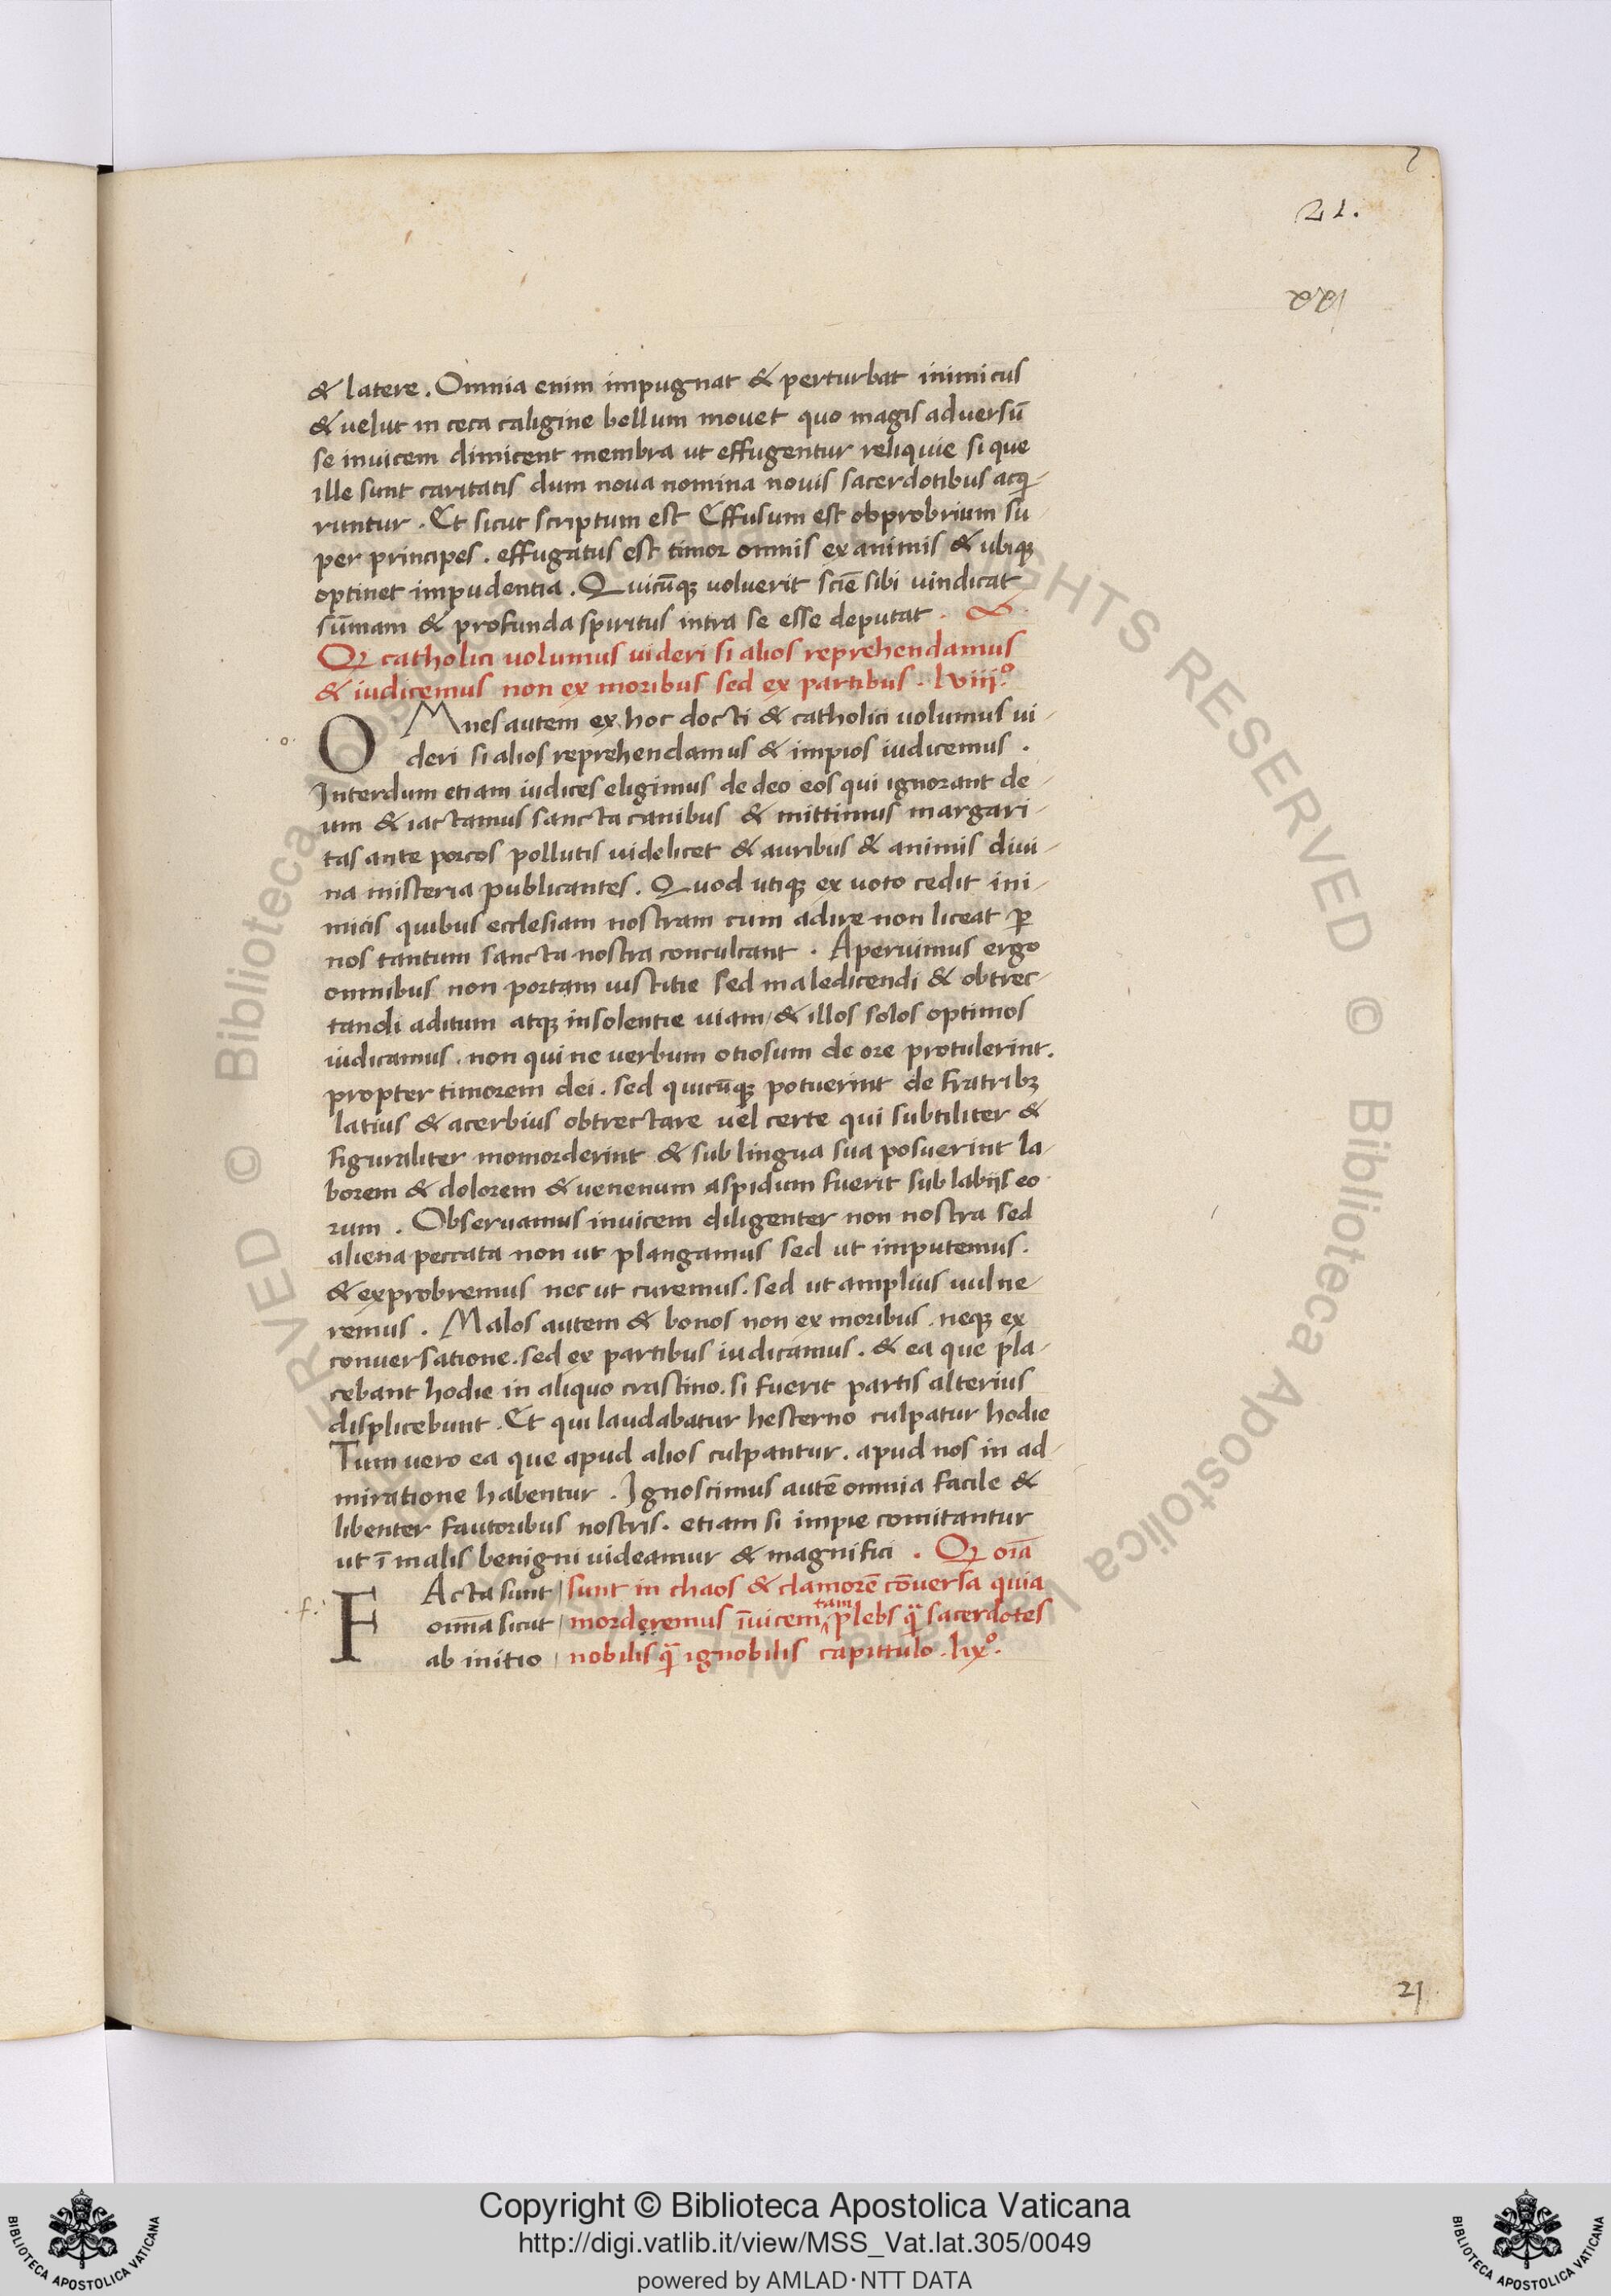 21.
xxi
& latere. Omnia enim impugnat & perturbat inimicus
& velut in ceca caligine bellum mouet quo magis adversū
se invicem dimicent membra ut effugentur reliquie si que
ille sunt caritatis dum nova nomina novis sacerdotibus acqi-
runtur. Et sicut scriptum est Effusum est obprobrium su-
per principes. effugatus est timor omnis ex animis & ubiqꝫ
optinet impudentia. Quicūqꝫ voluerit sciē sibi vindicat
sūmam & profunda spiritus intra se esse deputat.
Qꝫ catholici volumus videri si alios reprehendamus
& iudicemus non ex moribus sed ex partibus. lviii.º
o.
OMnes autem ex hoc docti & catholici volumus vi-
deri si alios reprehendamus & impios iudicemus.
Interdum etiam iudices eligimus de deo eos qui ignorant de-
um & iactamus sancta canibus & mittimus margari-
tas ante porcos pollutis videlicet & auribus & animis divi-
na misteria publicantes. Quod utiqꝫ ex voto cedit ini-
micis quibus ecclesiam nostram cum adire non liceat ꝑ
nos tantum sancta nostra conculcant. Aperuimus ergo
omnibus non portam iustitie sed maledicendi & obtrec-
tandi aditum atqꝫ insolentie viam/& illos solos optimos
iudicamus. non qui ne verbum otiosum de ore protulerint.
propter timorem dei. sed quicūqꝫ potuerint de fratribꝫ
latius & acerbius obtrectare vel certe qui subtiliter &
figuraliter momorderint & sub lingua sua posuerint la-
borem & dolorem & venenum aspidum fuerit sub labijs eo-
rum. Observamus invicem diligenter non nostra sed
aliena peccata non ut plangamus sed ut imputemus.
& exprobremus nec ut curemus. sed ut amplius vulne-
remus. Malos autem & bonos non ex moribus. neqꝫ ex
conversatione. sed ex partibus iudicamus. & ea que pla-
cebant hodie in aliquo crastino. si fuerit partis alterius
displicebunt. Et qui laudabatur hesterno culpatur hodie
Tum vero ea que apud alios culpantur. apud nos in ad-
miratione habentur. Ignoscimus autē omnia facile &
libenter fautoribus nostris. etiam si impie comitantur
ut ī malis benigni videamur & magnifici. Qꝫ oīa
f.
FActa sunt | sunt in chaos & clamorē cōversa quia
omīa sicut | morderemus īvicem tam plebs q̄ sacerdotes
ab initio | nobilis q̄ ignobilis capittulo. lix.º
21
Copyright © Biblioteca Apostolica Vaticana
http://digi.vatlib.it/view/MSS_Vat.lat.305/0049
powered by AMLAD·NTT DATA
BIBLIOTECA APOSTOLICA VATICANA
BIBLIOTECA APOSTOLICA VATICANA